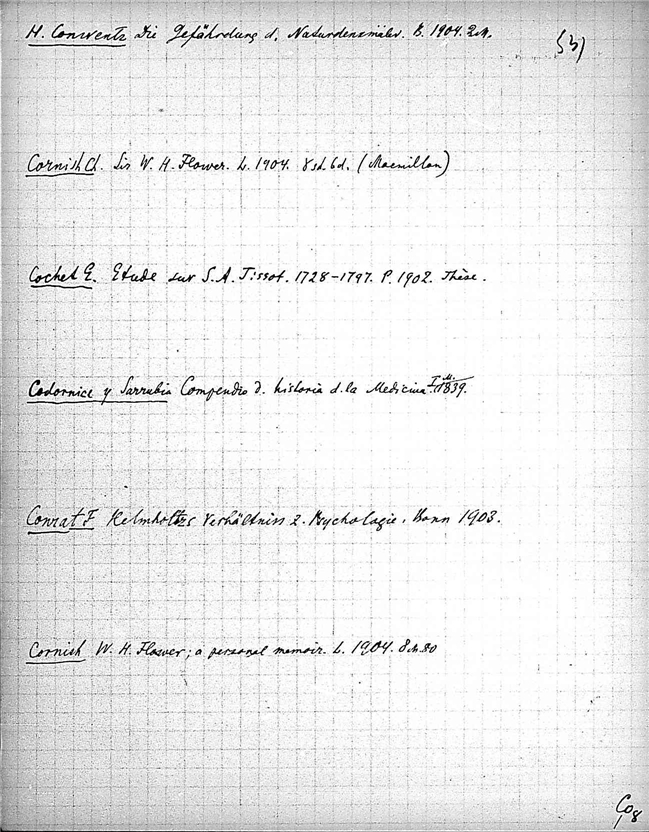 H. Conwentz Die Gefährdung d. Naturdenkmäler. B. 1904. 2 M.
53)
Cornish Ch. Sir W. H. Flower. L. 1904. 8 sh. 6d. (Macmillan)
Cochet E. Etude sur S. A. Tissot. 1728–1797. P. 1902. Thèse.
Codornice y Sarrubia Compendio d. historia d. la Medicina M. 1839.
Conrat F Helmholtzs Verhältniss z. Psychologie. Bonn 1903.
Cornish W. H. Flower; a personal memoir. L. 1904. 8
Co 8